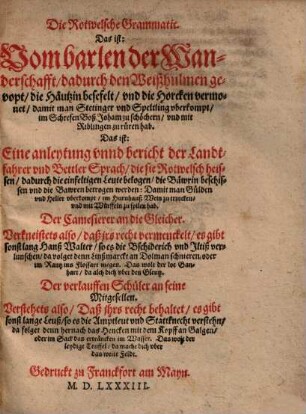 Die Rotwelsche Grammatic.
Das ist:
Vom barlen der Wan-
derschafft / dadurch den Weißhulmen ge-
vopt / die Häutzin besefelt / vnd die Horcken vermo-
net / damit man Stettinger vnd Speltling vberkompt /
im Schrefen Boß Joham zu schöchern / vnd mit
Riblingen zu rüren hab.
Das ist:
Eine anleytung vnnd bericht der Landt-
fahrer vnd Bettler Sprach / die sie Rotwelsch heis-
sen / dadurch die einfeltigen Leute belogen / die Bäwrin beschis-
sen vnd die Bawren betrogen werden: Damit man Gülden
vnd Heller vberkompt / im Hurnhauß Wein zu trincken /
vnd mit Würffeln zu spielen hab.
Der Camesierer an die Gleicher.
Verkneistets also / daß jrs recht vermenckelt / es gibt
sonst lang Hanß Walter / so es die Bschiderich vnd Iltiß ver-
lunschen / da volget denn ein smarckt an Dolman schnieren / oder
im Rantz ins Floßart megen. Das wöll der loe Gan-
hart / da alch dich vber den Glentz.
Der verlauffen Schüler an seine
Mitgesellen.
Verstehets also / Daß jhrs recht behaltet / es gibt
sonst lange Leuß / so es die Amptleut vnd Stattknecht verstehn /
da folget denn hernach das Hencken mit dem Kopff an Galgen /
oder im Sack das ertrincken im Wasser. Das wöll der
leydige Teuffel / da mache dich vber
das weite Feldt.
Gedruckt zu Franckfort am Mayn.
M. D. LXXXIII.